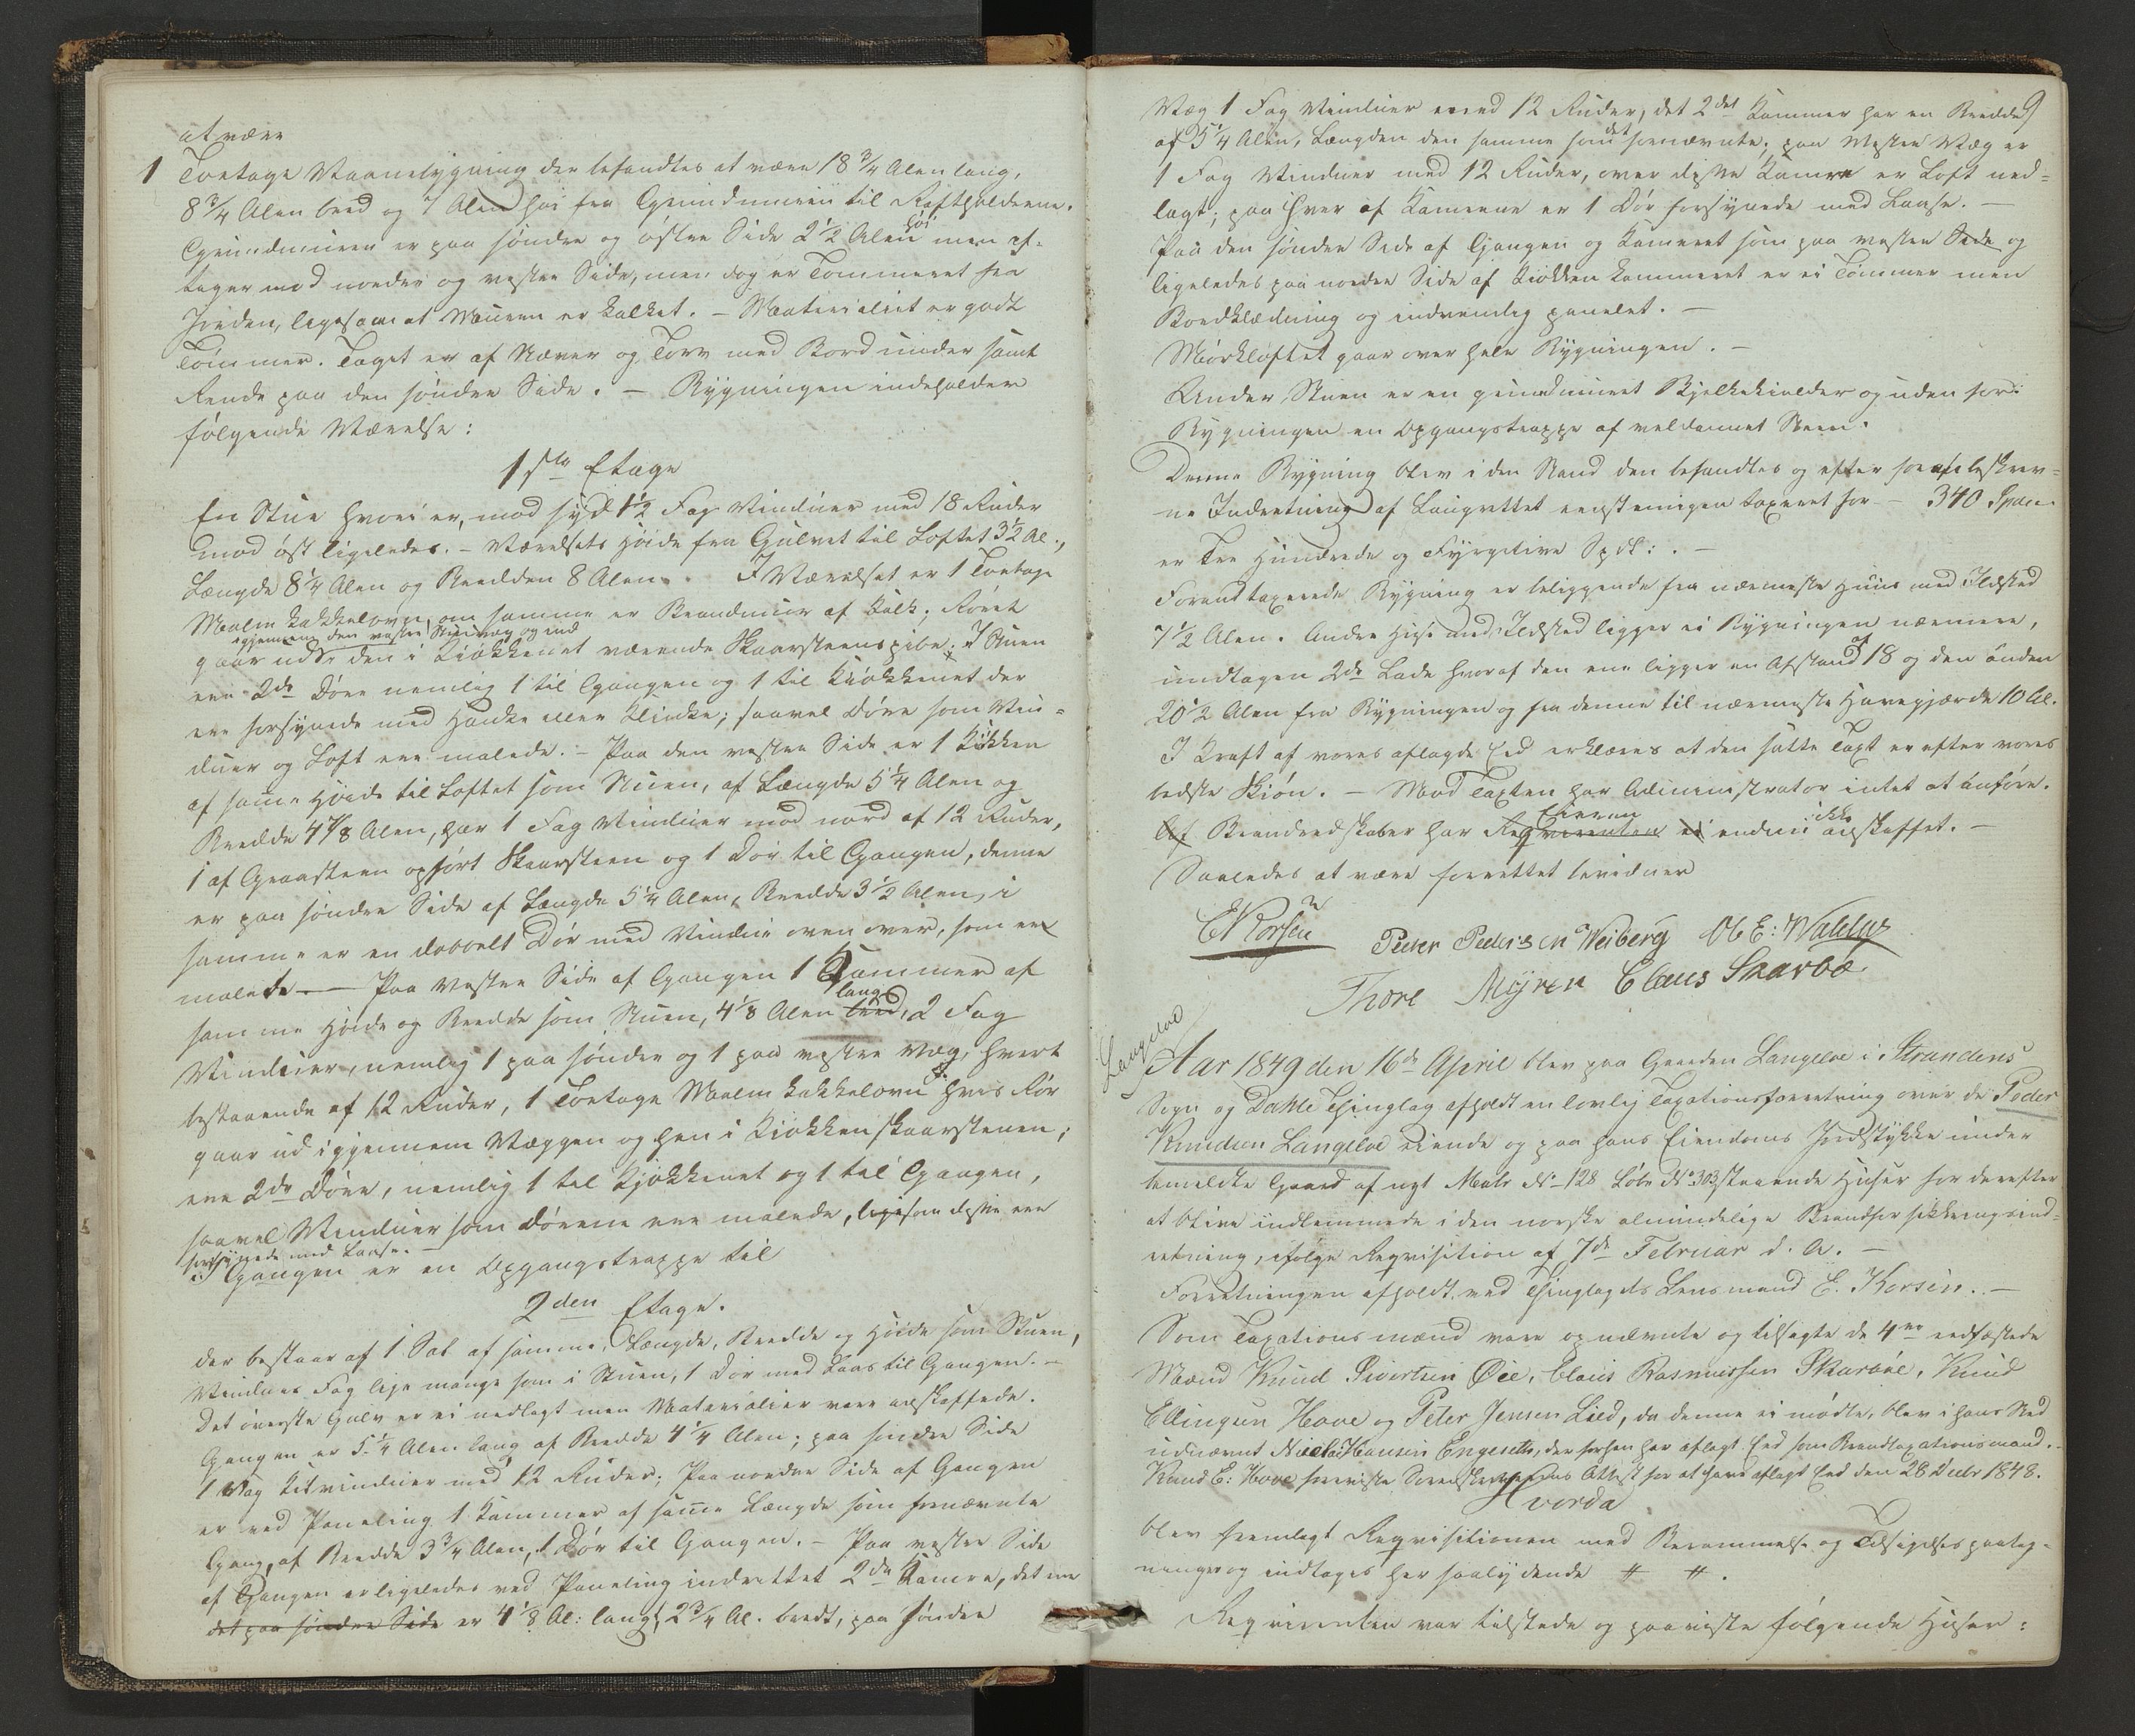 at være
1 Toetage Vaanebygning der befandtes at være 18 3/4 Alen lang,
8 3/4 Alen bred og 7 Alen høi fra Grundmuren til Raftholderne.
Grundmuren er paa søndre og østre Side 2 1/2 Alen høi men af-
tager mod nordre og vestre Side, men dog er Tømmeret fra
Jorden, ligesom at Muren er kalket. – Materialiet er godt
Tømmer. Taget er af Næver og Torv med Bord under samt
Rende paa den søndre Side. – Bygningen indeholder
følgende Værelse:
1ste Etage
En Stue hvori er, mod syd 1 1/2 Fag Vinduer med 18 Ruder
mod øst ligeledes. – Værelsets Høide fra Gulvet til Loftet 3 1/2 Al.,
Længde 8 1/4 Alen og Bredden 8 Alen. I Værelset er 1 Toetage
Malm Kakkelovn, om samme er Brandmuur af Kalk; Røret
igjennem den vestre Stuevæg og ind
gaar ud i den i Kiøkkenet værende Skaarsteenspibe. I Stuen
ere 2de Døre nemlig 1 til Gangen og 1 til Kiøkkenet der
ere forsynede med Hanke eller Klinke; saavel Døre som Vin-
duer og Loft ere malede. – Paa den vestre Side er 1 Kiøkken
af samme Høide til Loftet som Stuen, af Længde 5 1/4 Alen og
Bredde 4 7/8 Alen, har 1 Fag Vinduer mod nord af 12 Ruder,
1 af Graasteen opført Skaarsteen og 1 Dør til Gangen, denne
er paa søndre Side af Længde 5 1/4 Alen, Bredde 3 1/2 Alen, i
samme er en dobbelt Dør med Vindue oven over, som er
malede. – Paa vestre Side af Gangen 1 Kammer af
samme Høide og Bredde som Stuen, 4 1/8 Alen bred, lang 2 Fag
Vinduer, nemlig 1 paa søndre og 1 paa vestre Væg, hvert
bestaaende af 12 Ruder, 1 Toetage Malm Kakkelovn hvis Rør
gaar ud igjennem Væggen og hen i Kiøkkenskaarstenen;
ere 2de Døre, nemlig 1 til Kjøkkenet og 1 til Gangen,
saavel Vinduer som Dørene ere malede, ligesom disse ere
forsynede med Laase. –
i Gangen er en Opgangstrappe til
2den Etage.
der bestaar af 1 Sal af samme Længde, Bredde og Høide som Stuen,
Vinduer Fag lige mange som i Stuen, 1 Dør med Laas til Gangen. –
Det øverste Gulv er ei nedlagt men Materialier vare anskaffede.
Gangen er 5 1/4 Alen lang af Bredde 4 1/4 Alen; paa søndre Side
1 Fag Vinduer med 12 Ruder; Paa nordre Side af Gangen
er ved Paneling 1 Kammer af samme Længde som fornævnte
Gang, af Bredde 3 3/4 Alen, 1 Dør til Gangen. – Paa vestre Side
af Gangen er ligeledes ved Paneling indrettet 2de Kamre, det ene
det paa søndre Side er 4 1/8 Al: langt, 2 3/4 Al. bredt, paa søndre
9
Væg 1 Fag Vinduer med 12 Ruder, det 2det Kammer har en Bredde
af 5 1/4 Alen, Længden den samme som det fornævnte; paa Vestre Væg er
1 Fag Vinduer med 12 Ruder, over disse Kamre er Loft ned-
lagt; paa hver af Kamrene er 1 Dør forsynede med Laase. –
Paa den søndre Side af Gangen og Kameret som paa vestre Side og
ligeledes paa nordre Side af Kiøkken kammeret er ei Tømmer men
Bordklædning og indvendig panelet. –
Mørkloftet gaar over hele Bygningen. –
Under Stuen er en grundmuret Bjelkekielder og uden for
Bygningen en Opgangstrappe af veldannet Steen.
Denne Bygning blev i den Stand den befandtes og efter foran beskrev-
ne Indretning af Laugrettet eenstemmigen taxeret for – 340 Spec.
er Tre Hundrede og Fyrgetive Spd: . –
Forantaxerede Bygning er beliggende fra nærmeste Huus med Ildsted
7 1/2 Alen. Andre Huse med Ildsted ligger ei Bygningen nærmere,
undtagen 2de Lade hvoraf den ene ligger en Afstand af 18 og den anden
20 1/2 Alen fra Bygningen og fra denne til nærmeste Havegjærde 10 Al.
I Kraft af vores aflagde Eed erklæres at den satte Taxt er efter vores
bedste Skiøn. – Mod Taxten har Administrator intet at anføre.
Af Brandredskaber har Reqvirenten Eieren ei endnu ikke anskaffet. –
Saaledes at være forrettet bevidner
E Korsen Peder Pedersen Weiberg Ol E: Waldus
Thore Myren Claus Skarbø
Langeloe
Aar 1849 den 16de April blev paa Gaarden Langeloe i Strandens
Sogn og Dahle Thinglag afholdt en lovlig Taxationsforretning over de Peder
Knudsen Langeloe eiende og paa hans Eiendoms Jordstykke under
bemeldte Gaard af nyt Matr No 128 Løbe No 303 staaende Huse for derefter
at blive indlemmede i den norske almindelige Brandforsikkringsind-
retning, ifølge Reqvisition af 7de Februar d. A. –
Forretningen afholdt ved Thinglagets Lensmand E. Korsen. –
Som Taxationsmænd vare opnævnte og tilsagte de 4re eedfæstede
Mænd Knud Sivertsen Øie, Claus Rasmussen Skarbøe, Knud
Ellingsen Hove og Peter Jensen Lied, da denne ei mødte, blev i hans Sted
udnævnt Nicolai Hansen Engeseth, der forhen har aflagt Eed som Brandtaxationsmand. –
Knud E: Hove foreviste Sorenskriverens Attest for at have aflagt Eed den 28 Decbr 1848.
Hvorda
blev fremlagt Reqvisitionen med Berammelse og Tilsigelses paateg-
ninger og indtages her saalydende # #.
Reqvirenten var tilstede og paaviste følgende Huser: